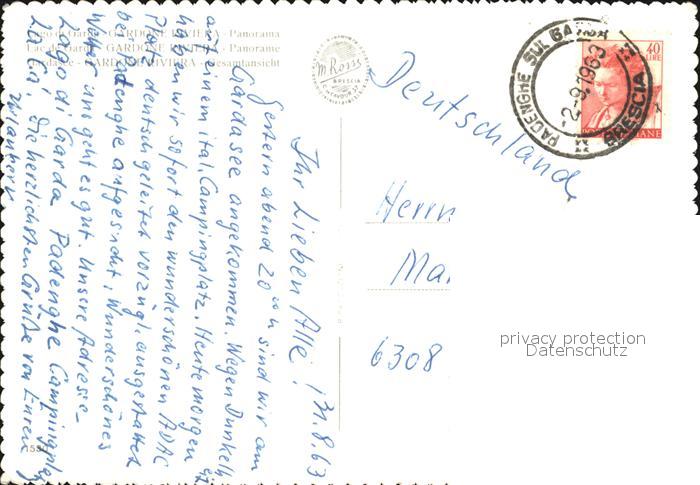 Lago di Garda - GARDONE RIVIERA - Panorama
Lac de Garde - GARDONE RIVIERA - Panorame
Gardasee - GARDONE RIVIERA - Gesamtansicht
BRESCIA
PADENGHE SUL GARDA
2-9.1963
BRESCIA
40
LIRE
Deutschland
Herrn
Ma
6308
31.8.63
Ihr Lieben Alle!
Gestern abend 20 00 h sind wir am
Gardasee angekommen. Wegen Dunkelh
auf einem ital. Campingplatz. Heute morgen
haben wir sofort den wunderschönen ADAC
Platz deutsch geleitet vorzügl. ausgestattet
bei Padenghe aufgesucht. Wunderschönes
Wetter uns geht es gut. Unsere Adresse
Lago di Garda Padenghe Campingpl
La Ca'. Die herzlichsten Grüße von Euren
Urlaubern
privacy protection
Datenschutz